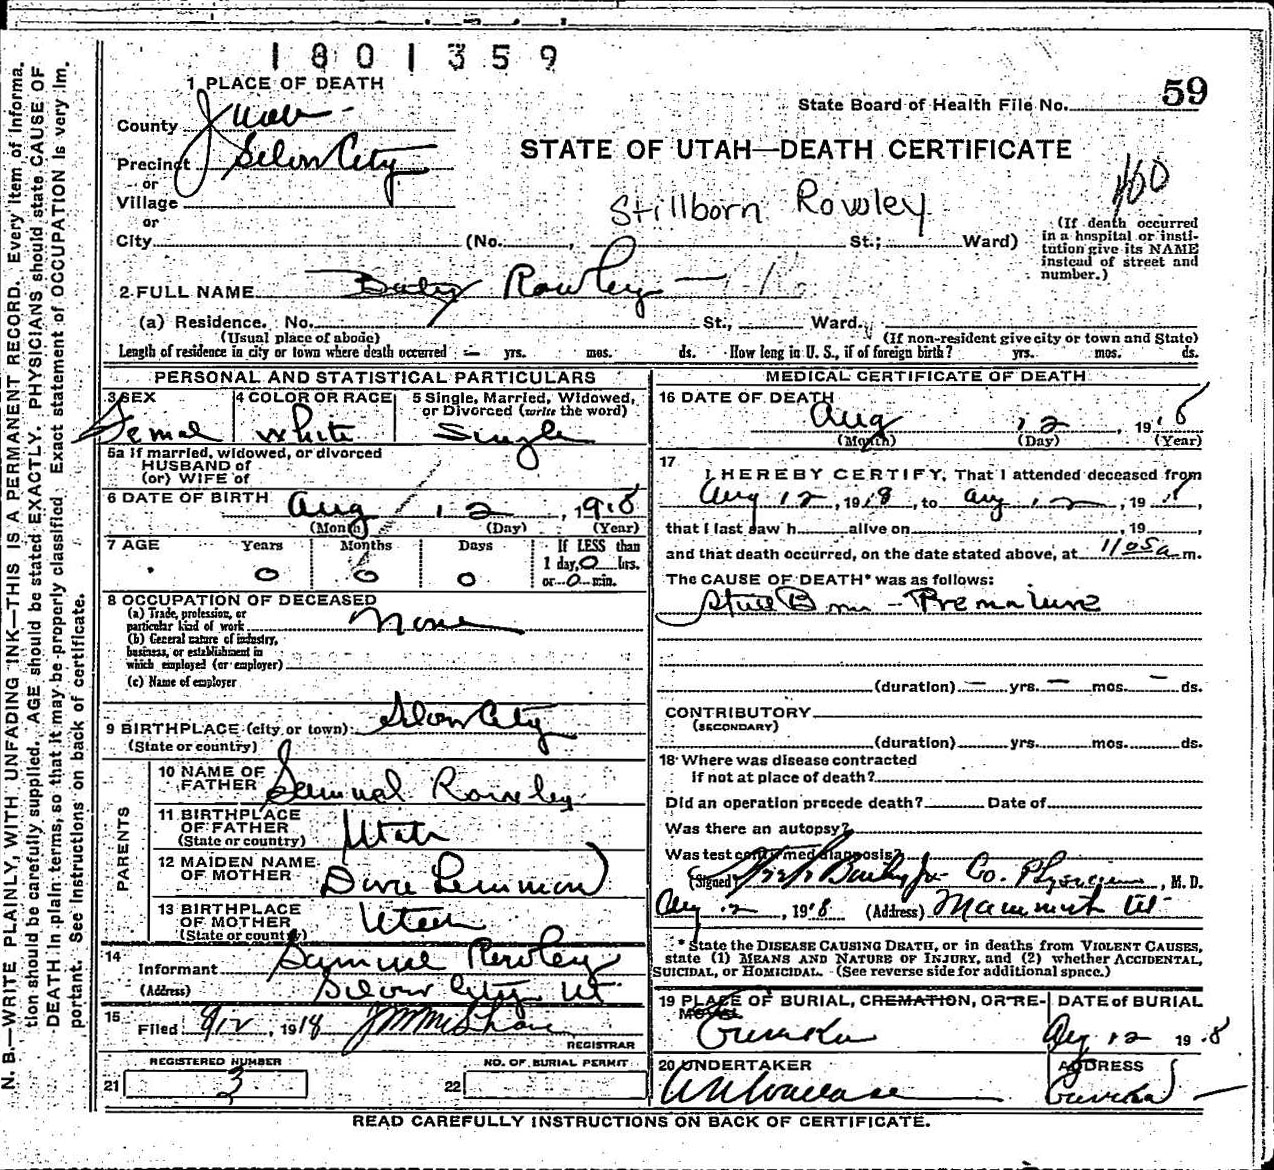 1801359
59
State Board of Health File No.
STATE OF UTAH—DEATH CERTIFICATE
1 PLACE OF DEATH
County Juab
Precinct Silver City
or
Village
or
City (No. , St.; Ward)
Stillborn Rowley
(If death occurred
in a hospital or insti-
tution give its NAME
instead of street and
number.)
2 FULL NAME Baby Rowley
(a) Residence. No. St., Ward.
(Usual place of abode) (If non-resident give city or town and State)
Length of residence in city or town where death occurred — yrs. mos. ds. How long in U. S., if of foreign birth? yrs. mos. ds.
PERSONAL AND STATISTICAL PARTICULARS
3 SEX 4 COLOR OR RACE 5 Single, Married, Widowed,
or Divorced (write the word)
Femal White Single
5a If married, widowed, or divorced
HUSBAND of
(or) WIFE of
6 DATE OF BIRTH Aug 12, 1918
(Month) (Day) (Year)
7 AGE Years Months Days If LESS than
1 day, 0 hrs.
0 0 0 or 0 min.
8 OCCUPATION OF DECEASED
(a) Trade, profession, or
particular kind of work None
(b) General nature of industry,
business, or establishment in
which employed (or employer)
(c) Name of employer
9 BIRTHPLACE (city or town) Silver City
(State or country)
PARENTS
10 NAME OF
FATHER Samuel Rowley
11 BIRTHPLACE
OF FATHER Utah
(State or country)
12 MAIDEN NAME
OF MOTHER Lemmon
13 BIRTHPLACE
OF MOTHER Utah
(State or country)
14
Informant Samuel Rowley
(Address) Silver City Ut
15
Filed 9/12, 1918
REGISTRAR
REGISTERED NUMBER NO. OF BURIAL PERMIT
21 3 22
MEDICAL CERTIFICATE OF DEATH
16 DATE OF DEATH
Aug 12, 1918
(Month) (Day) (Year)
17
I HEREBY CERTIFY, That I attended deceased from
Aug 12, 1918, to Aug 12, 1918,
that I last saw h alive on , 19 ,
and that death occurred, on the date stated above, at 1105a m.
The CAUSE OF DEATH* was as follows:
Still Born - Premature
(duration) — yrs. — mos. — ds.
CONTRIBUTORY
(SECONDARY)
(duration) yrs. mos. ds.
18 Where was disease contracted
if not at place of death?
Did an operation precede death? Date of
Was there an autopsy?
Was test confirmed diagnosis?
(Signed) Bailey Jr Co. Physician, M. D.
Aug 12, 1918 (Address) Mammoth Ut
* State the DISEASE CAUSING DEATH, or in deaths from VIOLENT CAUSES,
state (1) MEANS AND NATURE OF INJURY, and (2) whether ACCIDENTAL,
SUICIDAL, or HOMICIDAL. (See reverse side for additional space.)
19 PLACE OF BURIAL, CREMATION, OR RE-
MOVAL DATE of BURIAL
Eureka Aug 12 1918
20 UNDERTAKER ADDRESS
Wallace Eureka
READ CAREFULLY INSTRUCTIONS ON BACK OF CERTIFICATE.
N. B.—WRITE PLAINLY, WITH UNFADING INK—THIS IS A PERMANENT RECORD. Every item of informa-
tion should be carefully supplied. AGE should be stated EXACTLY. PHYSICIANS should state CAUSE OF
DEATH in plain terms, so that it may be properly classified. Exact statement of OCCUPATION is very im-
portant. See instructions on back of certificate.